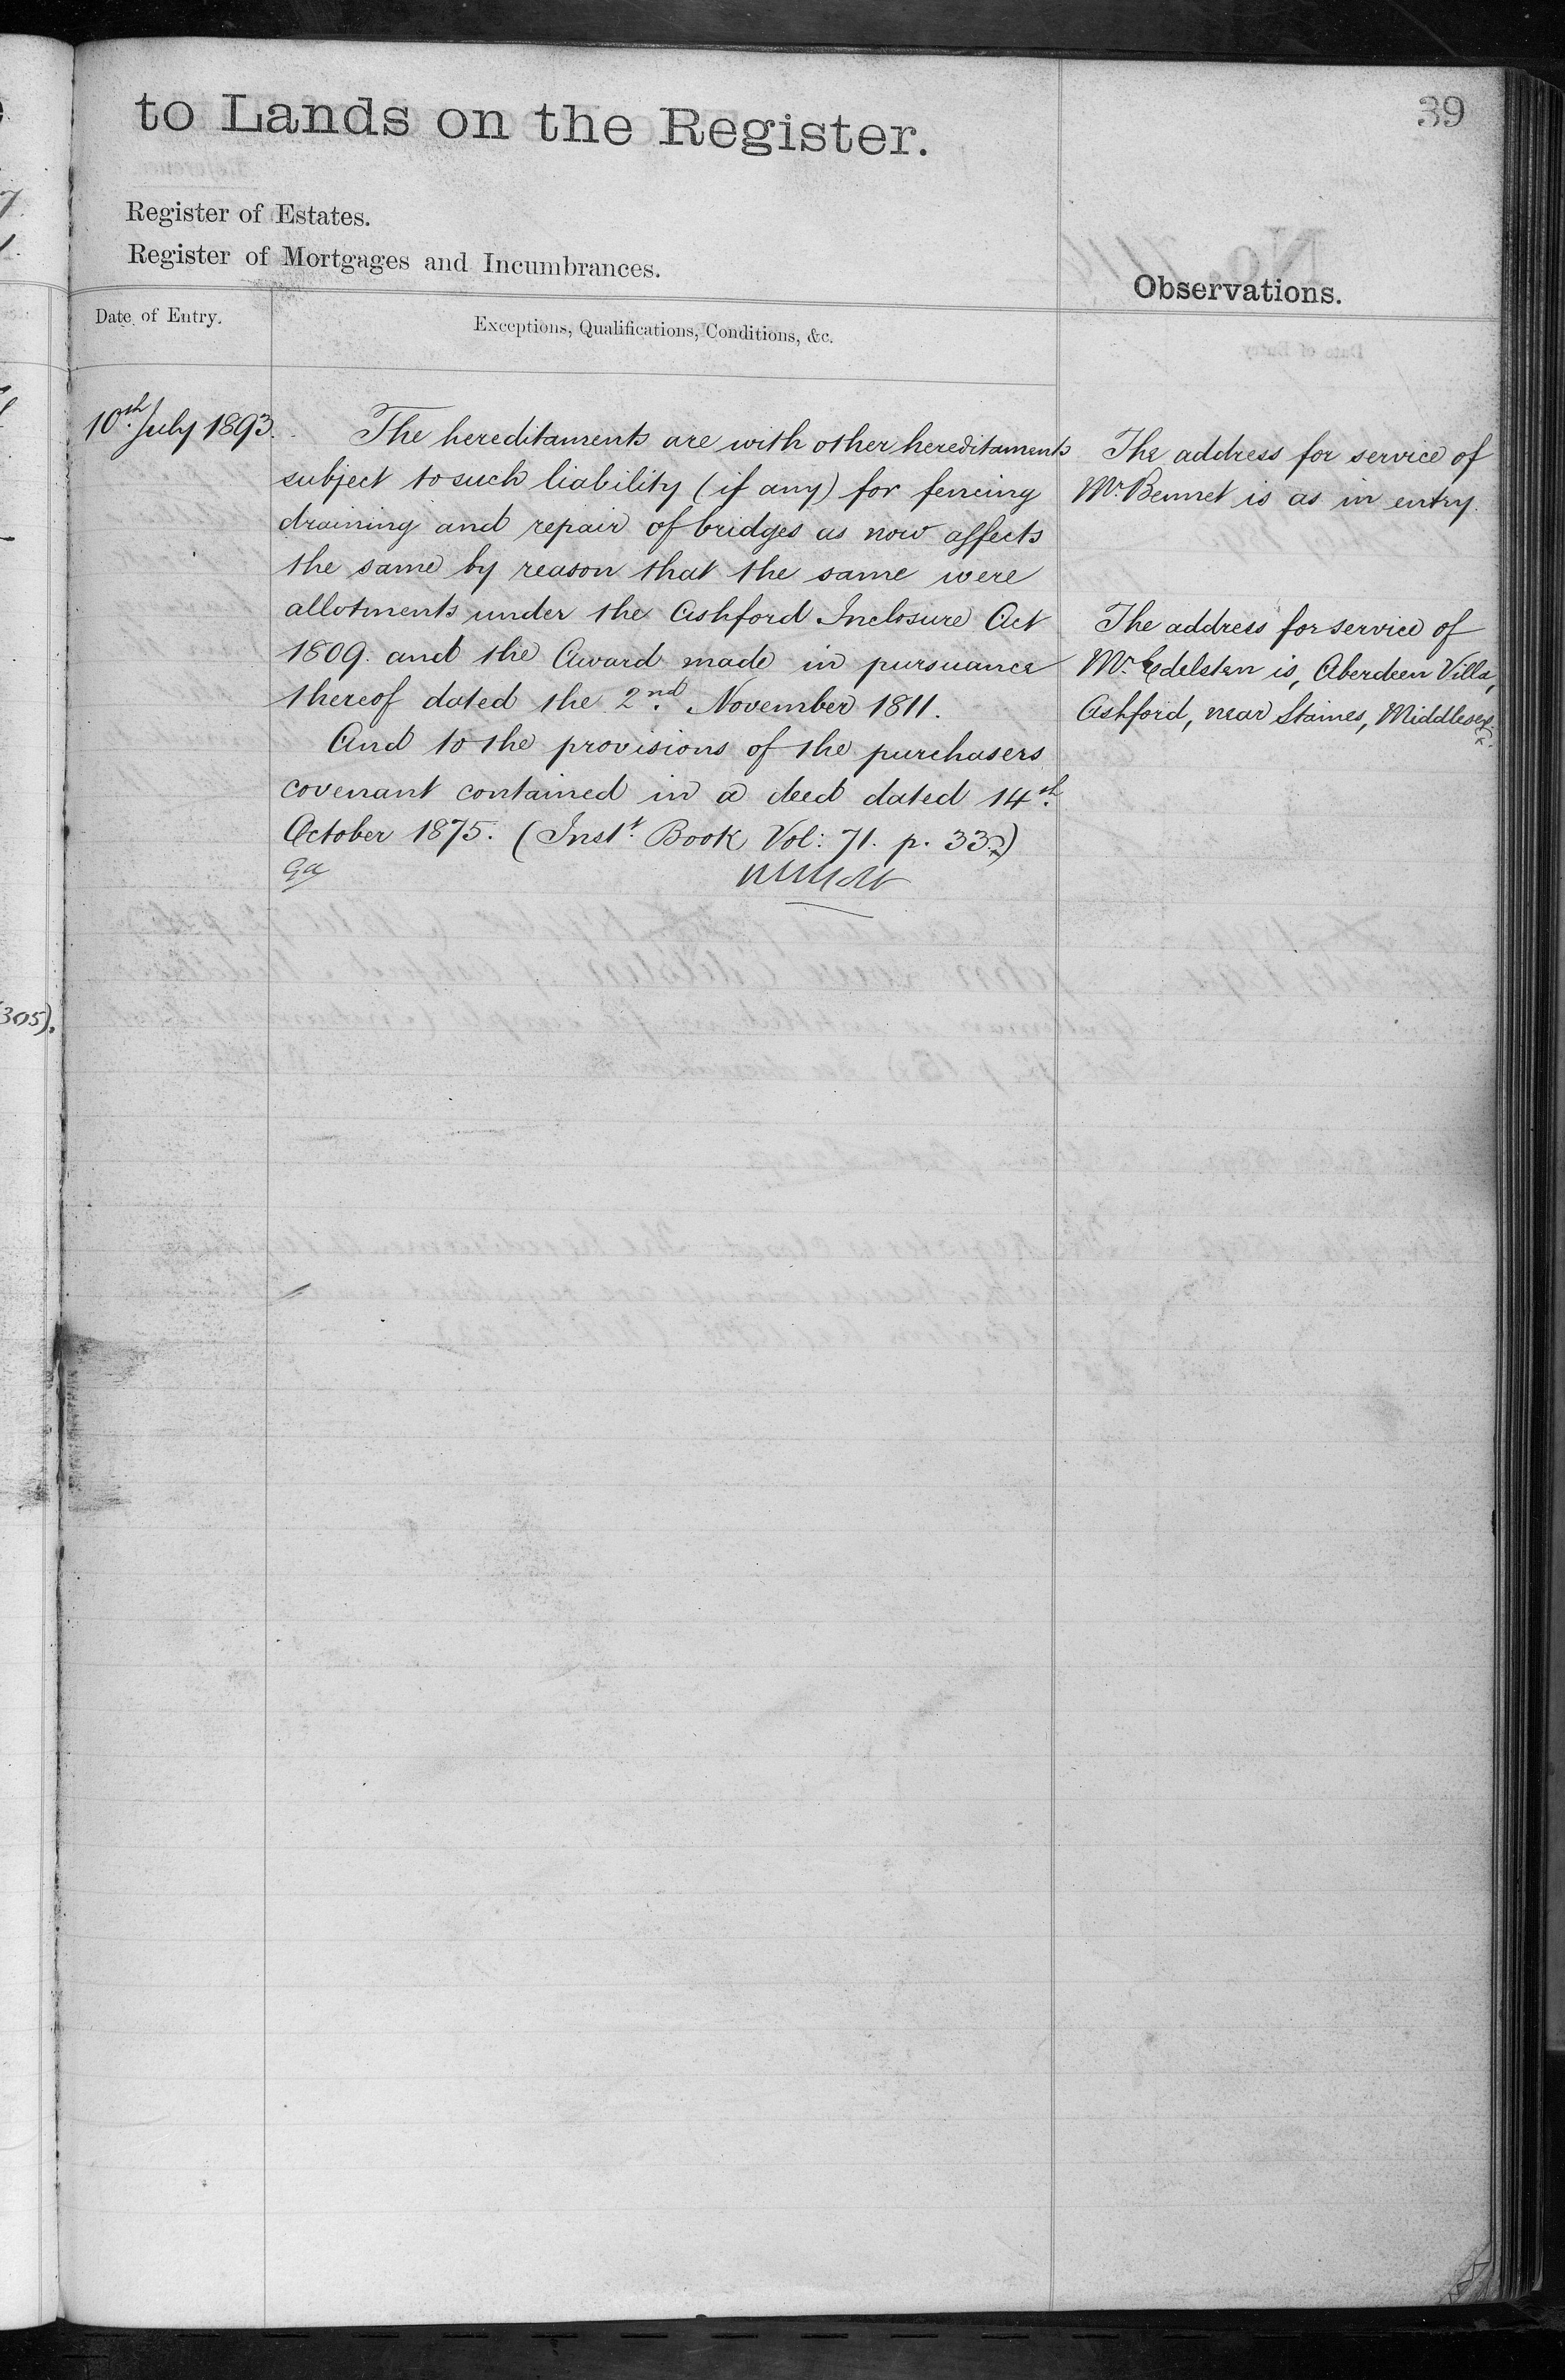 to Lands on the Register.
39
Register of Estates.
Register of Mortgages and Incumbrances.
Observations.
Date of Entry.
Exceptions, Qualifications, Conditions, &c.
10th July 1893.
The hereditaments are with other hereditaments
subject to such liability (if any) for fencing
draining and repair of bridges as now affects
the same by reason that the same were
allotments under the Ashford Inclosure Act
1809. and the Award made in pursuance
thereof dated the 2nd November 1811.
And to the provisions of the purchasers
covenant contained in a deed dated 14th
October 1875. (Inst. Book Vol: 71. p. 33.)
The address for service of
Mr. Bennet is as in entry.
The address for service of
Mr. Edelsten is, Aberdeen Villa,
Ashford, near Staines, Middlesex.
305).